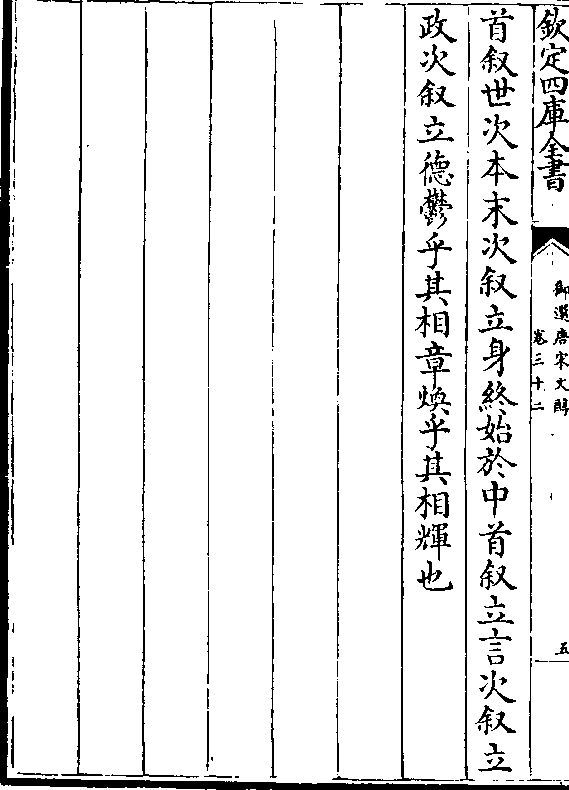 欽定四庫全書
御選唐宋文醇
卷三十二
五
首叙世次本末次叙立身終始於中首叙立言次叙立
政次叙立德鬱乎其相章煥乎其相輝也